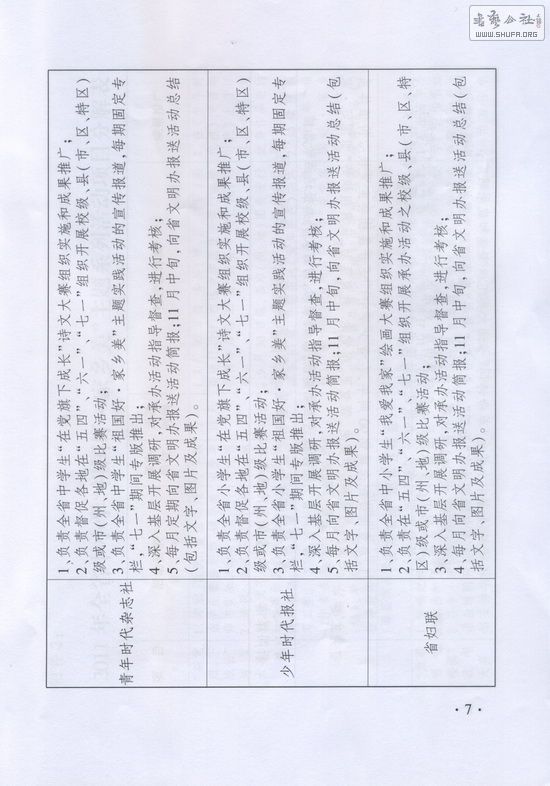 書藝公社
WWW.SHUFA.ORG
青年时代杂志社
1、负责全省中学生“在党旗下成长”诗文大赛组织实施和成果推广；
2、负责督促各地在“五四”、“六一”、“七一”组织开展校级、县（市、区、特区）
级或市（州、地）级比赛活动；
3、负责全省中学生“祖国好·家乡美”主题实践活动的宣传报道，每期固定专
栏，“七一”期间专版推出；
4、深入基层开展调研，对承办活动指导督查，进行考核；
5、每月定期向省文明办报送活动简报；11月中旬，向省文明办报送活动总结
（包括文字、图片及成果）。
少年时代报社
1、负责全省小学生“在党旗下成长”诗文大赛组织实施和成果推广；
2、负责督促各地在“五四”、“六一”、“七一”组织开展校级、县（市、区、特区）
级或市（州、地）级比赛活动；
3、负责全省小学生“祖国好·家乡美”主题实践活动的宣传报道，每期固定专
栏，“七一”期间专版推出；
4、深入基层开展调研，对承办活动指导督查，进行考核；
5、每月向省文明办报送活动简报；11月中旬，向省文明办报送活动总结（包
括文字、图片及成果）。
省妇联
1、负责全省中小学生“我爱我家”绘画大赛组织实施和成果推广；
2、负责在“五四”、“六一”、“七一”组织开展承办活动之校级、县（市、区、特
区）级或市（州、地）级比赛活动；
3、深入基层开展调研，对承办活动指导督查，进行考核；
4、每月向省文明办报送活动简报；11月中旬，向省文明办报送活动总结（包
括文字、图片及成果）。
·7·